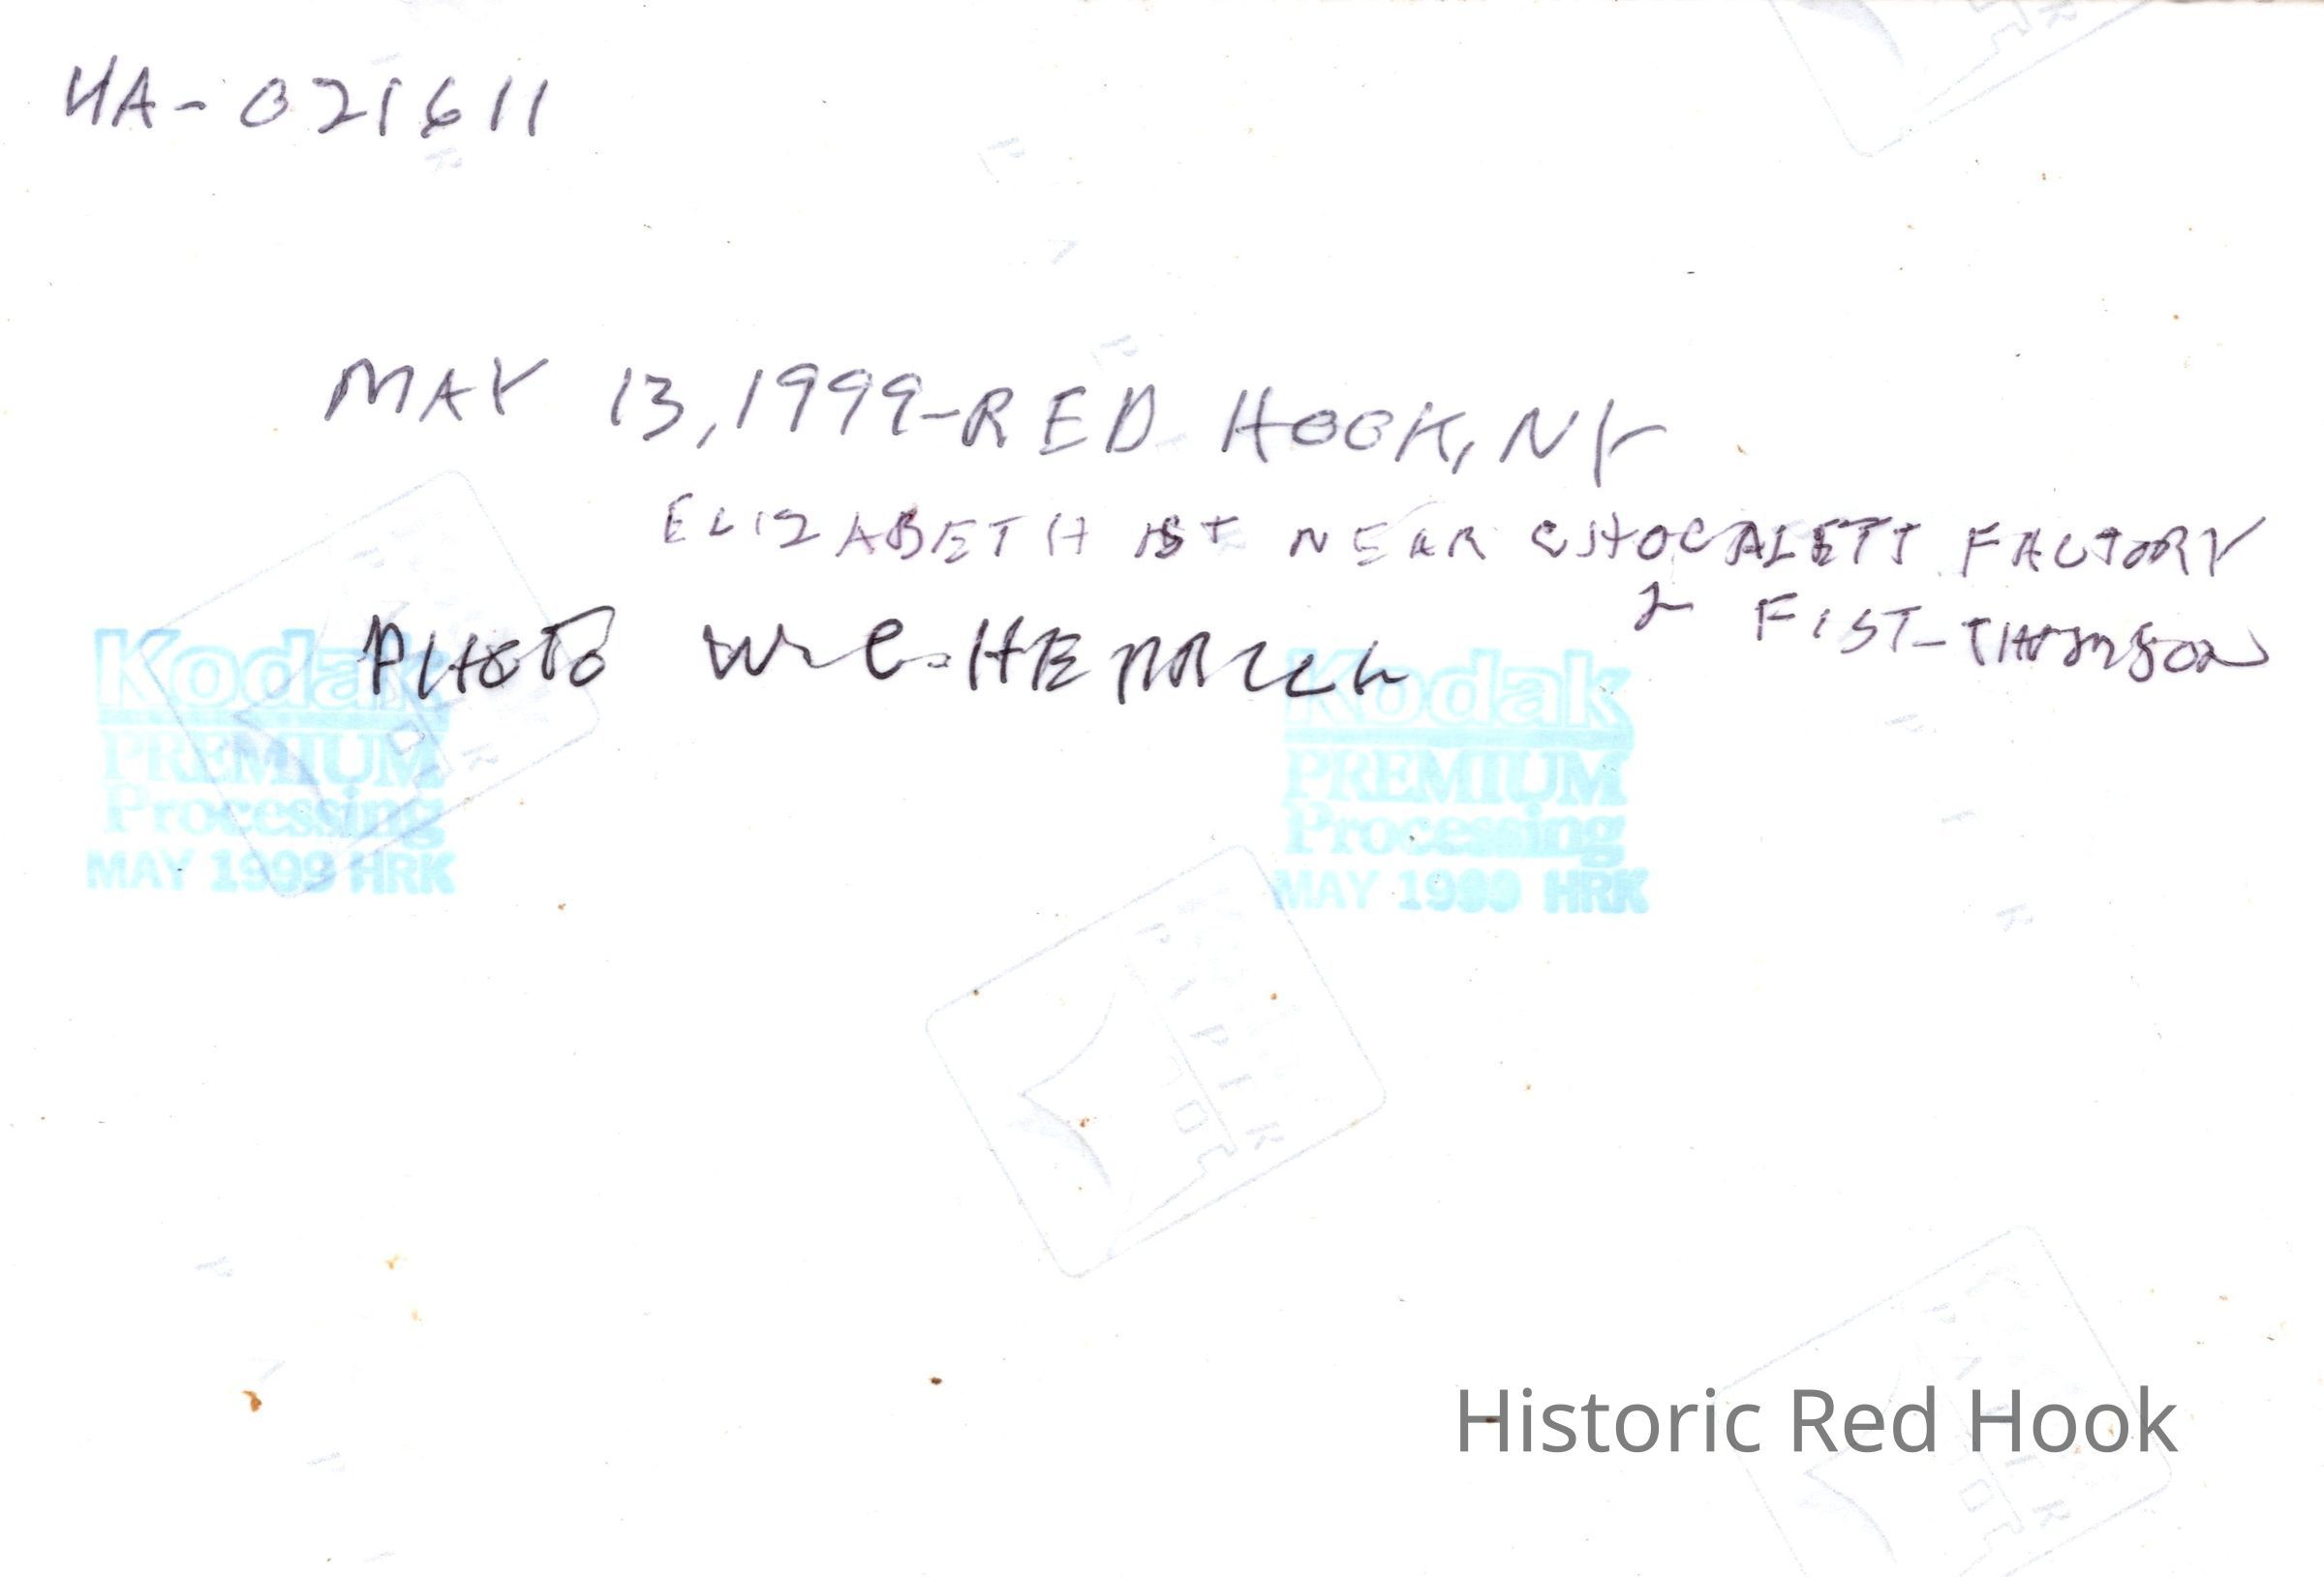 HA-021611
MAY 13, 1999-RED HOOK, NY
ELIZABETH ST NEAR CHOCALETT FACTORY
& FIST-THOMSON
PHOTO W. C. HENRICH
Kodak
PREMIUM
Processing
MAY 1999 HRK
Kodak
PREMIUM
Processing
MAY 1999 HRK
Historic Red Hook